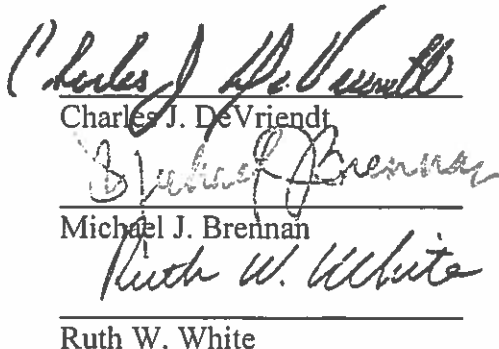 Charles J. DeVriendt
Charles J. DeVriendt
Michael J. Brennan
Michael J. Brennan
Ruth W. White
Ruth W. White